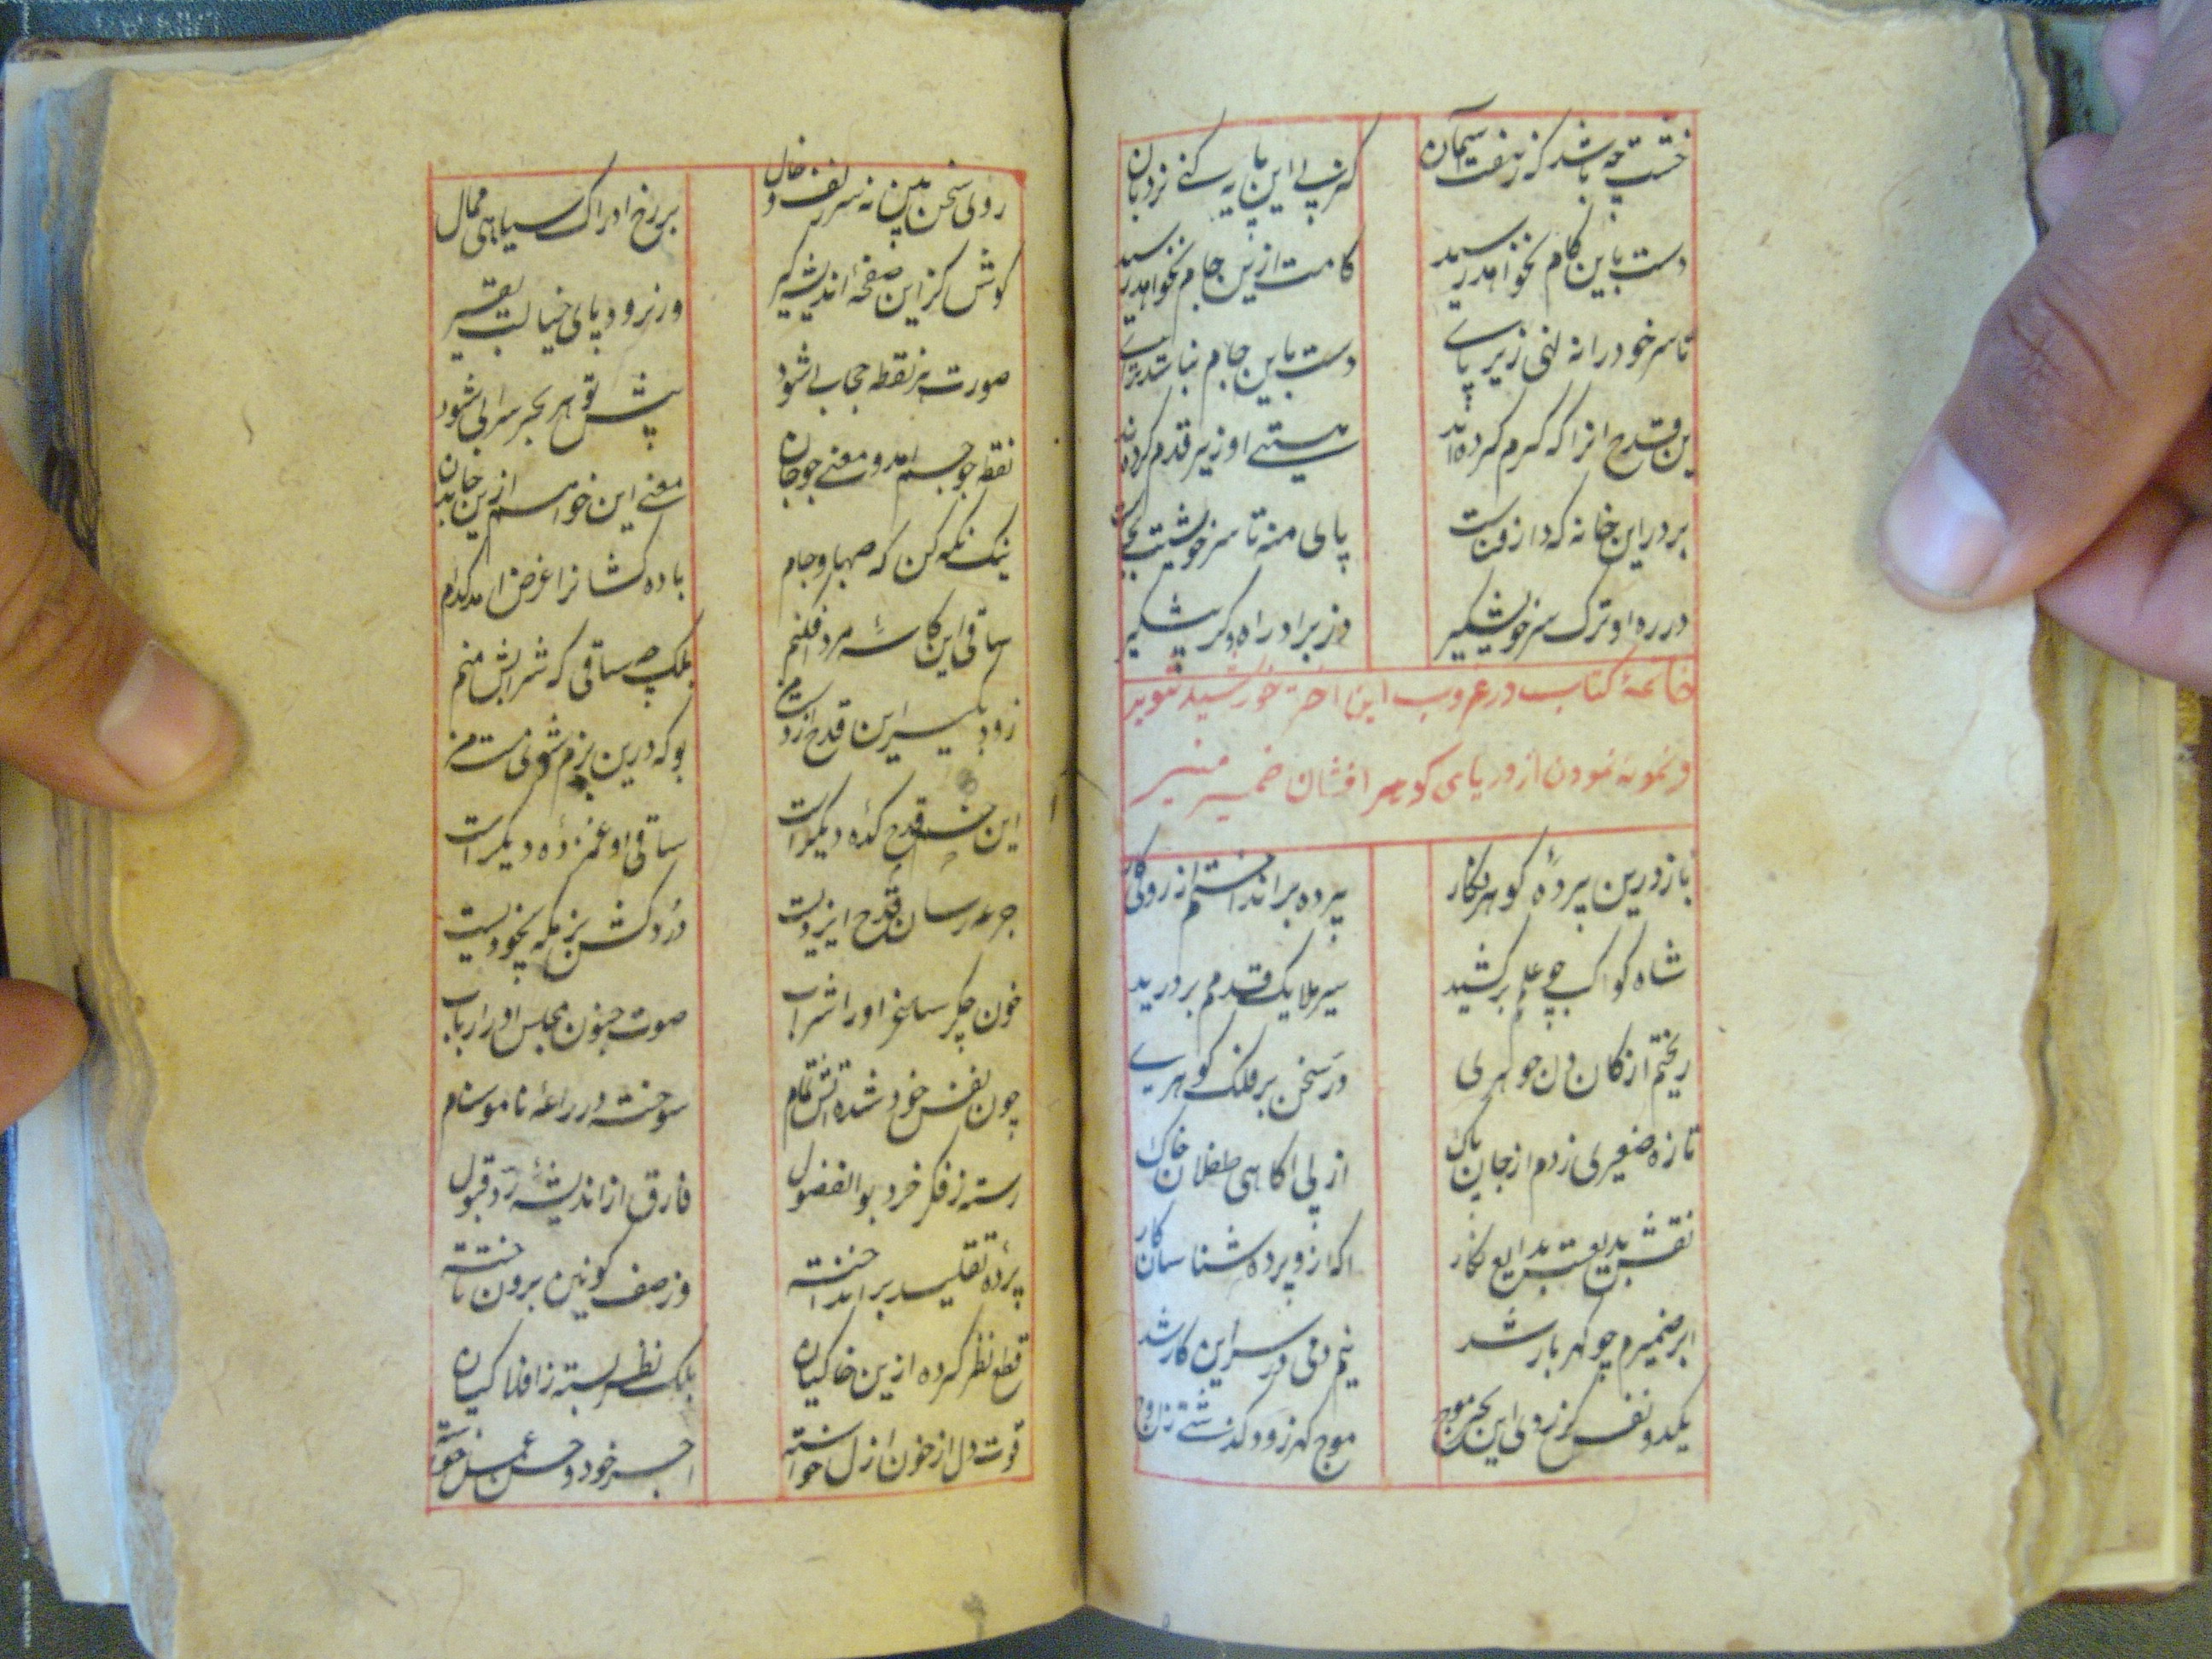 خشت چه باشد که ز هفت آسمان
کز پی این پایه کنی نردبان
دست باین کام نخواهد رسید
کامت ازین جام نخواهد رسید
تا سر خود را نه نهی زیر پای
دست باین جام نباشد ترا
این قدح آنرا که کرم کرده‌اند
هستی او زیر قدم کرده‌اند
بر در این خانه که دار فناست
پای منه تا سر خویشت بجاست
در ره او ترک سر خویش گیر
ورنه برو راه دگر پیش گیر
خاتمهٔ کتاب در غروب این اختر خورشید تنویر
و نمونه نمودن از دریای کوهر افشان ضمیر منیر
باز درین پردهٔ کوهر نکار
پرده برانداختم از روی کار
شاه کواکب چو علم برکشید
سیر ملایک قدمم بر درید
ریختم از کان دل جوهری
در سخن بر فلک کوهری
تازه صفیری زدم از جان پاک
از پی اکاهی طفلان خاک
نقش بدیعست بدایع نکار
اکه ازو پرده شناسان کار
ابر ضمیرم چو کهر بار شد
نیم دمی در سر این کار شد
یکدو نفس کز زدی این بحر موج
موج کهر زود کذشتی ز اوج
روی سخن بین نه سر زلف و خال
بر رخ ادراک سیاهی ممال
کوش کزاین صفحهٔ اندیشه گیر
ور نرود پای خیالت بقیر
صورت هر نقطه حجابی شود
پیش تو هر بحر سرابی شود
نقطه چو جسم امد و معنی چو جان
معنی این خواهم ازین جان بدان
نیک نکه کن که ز صهبا و جام
باده کشانرا غرض امد کدام
ساقی این کاسهٔ مرد افکنم
بلکه چه ساقی که شرابش منم
زود بگیر این قدح از دست من
بو که درین بزم شوی مست من
این خم و قدح کدهٔ دیکر است
ساقی او غمزدهٔ دیکر است
جرعه رسان قدح ایزدیست
درد کش بزمکه بیخودیست
خون جکر ساغر او را شراب
صوت جنون مجلس او را رباب
چون نفس خود شده آتش تمام
سوخته دراعهٔ ناموس و نام
رسته ز فکر خرد بوالفضول
فارق از اندیشهٔ رد و قبول
پردهٔ تقلید برانداخته
وز صف کونین برون تاخته
قطع نظر کرده ازین خاکیان
بلکه نظر بسته ز افلاکیان
قوت دل از خون ازل خواسته
اجر خود و حسن عمل خواسته